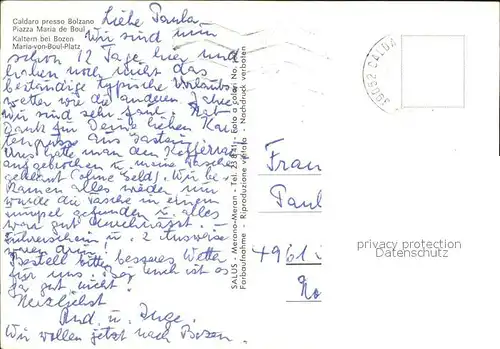 Caldaro presso Bolzano
Piazza Maria de Boul
Kaltern bei Bozen
Maria-von-Buol-Platz
Liebe Paula
Wir sind nun
schon 12 Tage hier und
haben noch nicht das
beständige typische Urlaubs
wetter wie die anderen Jahre
Wir sind sehr faul. Hab
Dank für Deine lieben Kar
tengrüsse aus Gastein.
Uns hatte man den Kofferraum
aufgebrochen u. meine Tasche
geklaut (ohne Geld). Wir be
kamen alles wieder nur
wurde die Tasche in einem
gefunden u. alles
war gut durchnässt.
Führerschein u. 2 Ausweise
waren drin.
Bestell bitte besseres Wetter
für uns. Bei Euch ist es
ja gut nicht!
Herzlichst
u. Inge.
Wir wollen jetzt nach Bozen.
SALUS - Merano-Meran - Tel. 23 8 11 - Foto a colori No.
Farbaufnahme - Riproduzione vietata - Nachdruck verboten
39052 CALDA
Frau
Paul
4961
privacy protection
Datenschutz